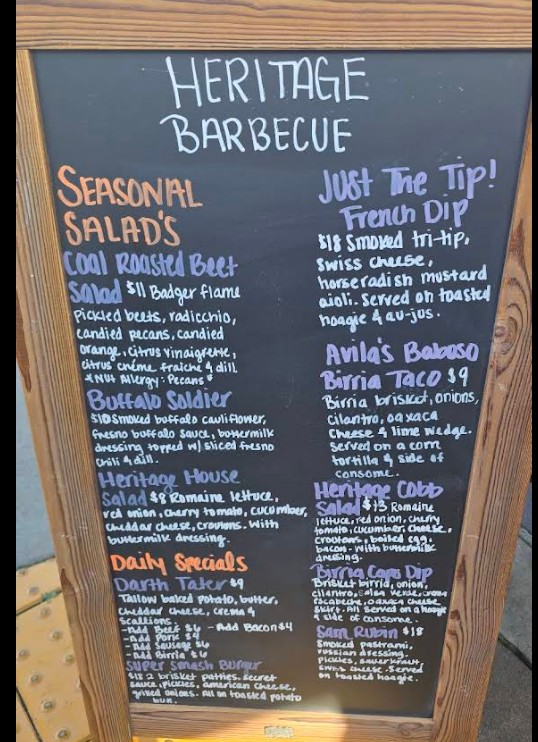 HERITAGE
BARBECUE
SEASONAL
SALAD'S
Coal Roasted Beet
Salad $11 Badger flame
pickled beets, radicchio,
candied pecans, candied
orange, citrus vinaigrette,
citrus créme fraiche & dill.
*Nut Allergy: Pecans*
Buffalo Soldier
$10 Smoked buffalo cauliflower,
fresno buffalo sauce, buttermilk
dressing topped w/ sliced fresno
chili & dill.
Heritage House
Salad $8 Romaine lettuce,
red onion, cherry tomato, cucumber,
cheddar cheese, croutons. With
buttermilk dressing.
Daily Specials
Darth Tater $9
Tallow baked potato, butter,
cheddar cheese, crema &
scallions.
-Add Beef $6 -Add Bacon $4
-Add Pork $4
-Add Sausage $6
-Add Birria $6
Super Smash Burger
$18 2 brisket patties, secret
sauce, pickles, american cheese,
grilled onions. All on toasted potato
bun.
Just The Tip!
French Dip
$18 Smoked tri-tip,
Swiss cheese,
horseradish mustard
aioli. Served on toasted
hoagie & au-jus.
Avila's Baboso
Birria Taco $9
Birria brisket, onions,
cilantro, oaxaca
cheese & lime wedge.
Served on a corn
tortilla & side of
consome.
Heritage Cobb
Salad $13 Romaine
lettuce, red onion, cherry
tomato, cucumber, cheese,
croutons, boiled egg,
bacon - with buttermilk
dressing.
Birria Caps Dip
Brisket birria, onion,
cilantro, salsa verde, crema
escabeche, oaxaca cheese
skirt. All served on a hoagie
& side of consome.
Sam Rubin $18
Smoked pastrami,
russian dressing,
pickles, sauerkraut
swiss cheese. Served
on toasted hoagie.